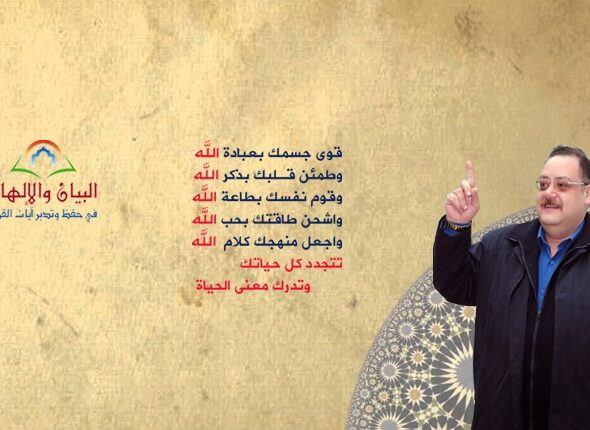 قوى جسمك بعبادة الله
وطمئن قلبك بذكر الله
وقوم نفسك بطاعة الله
واشحن طاقتك بحب الله
واجعل منهجك كلام الله
تتجدد كل حياتك
وتدرك معنى الحياة
البيان والإلها
في حفظ وتدبر آيات القر